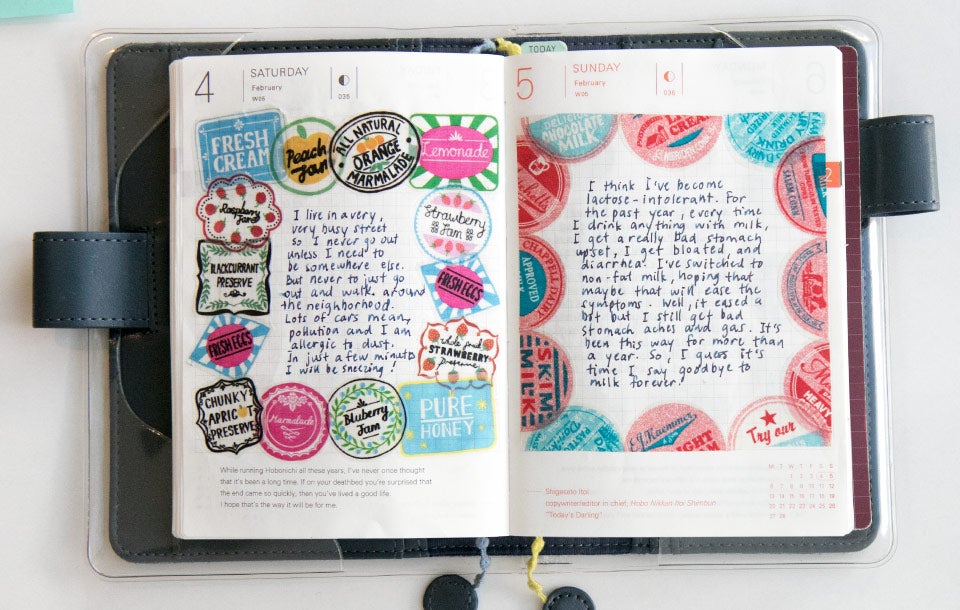 4
SATURDAY
February
W05
035
FRESH
CREAM
Peach
Jam
ALL NATURAL
ORANGE
MARMALADE
Lemonade
Raspberry
Jam
Strawberry
Jam
BLACKCURRANT
PRESERVE
FRESH EGGS
FRESH EGGS
STRAWBERRY
Preserve
CHUNKY
APRICOT
PRESERVE
Marmalade
Bluberry
Jam
PURE
HONEY
I live in a very,
very busy street
so I never go out
unless I need to
be somewhere else.
But never to just go
out and walk around
the neighborhood.
Lots of cars mean
pollution and I am
allergic to dust.
In just a few minutes
I will be sneezing!
While running Hobonichi all these years, I've never once thought
that it's been a long time. If on your deathbed you're surprised that
the end came so quickly, then you've lived a good life.
I hope that's the way it will be for me.
TODAY
5
SUNDAY
February
W05
036
DELICIOUS
CHOCOLATE
MILK
CREAM
DAIRY
CHAPPELL DAIRY
APPROVED
MILK
SKIM
SKIME
HEAVY
E.J. Kaemmer
Try our
2
I think I've become
lactose-intolerant. For
the past year, every time
I drink anything with milk,
I get a really bad stomach
upset, I get bloated, and
diarrhea. I've switched to
non-fat milk, hoping that
maybe that will ease the
symptoms. Well, it eased a
bit but I still get bad
stomach aches and gas. It's
been this way for more than
a year. So, I guess it's
time I say goodbye to
milk forever.
Shigesato Itoi
copywriter/editor in chief, Hobo Nikkan Itoi Shimbun
"Today's Darling"
M T W T F S S
1 2 3 4 5
6 7 8 9 10 11 12
13 14 15 16 17 18 19
20 21 22 23 24 25 26
27 28